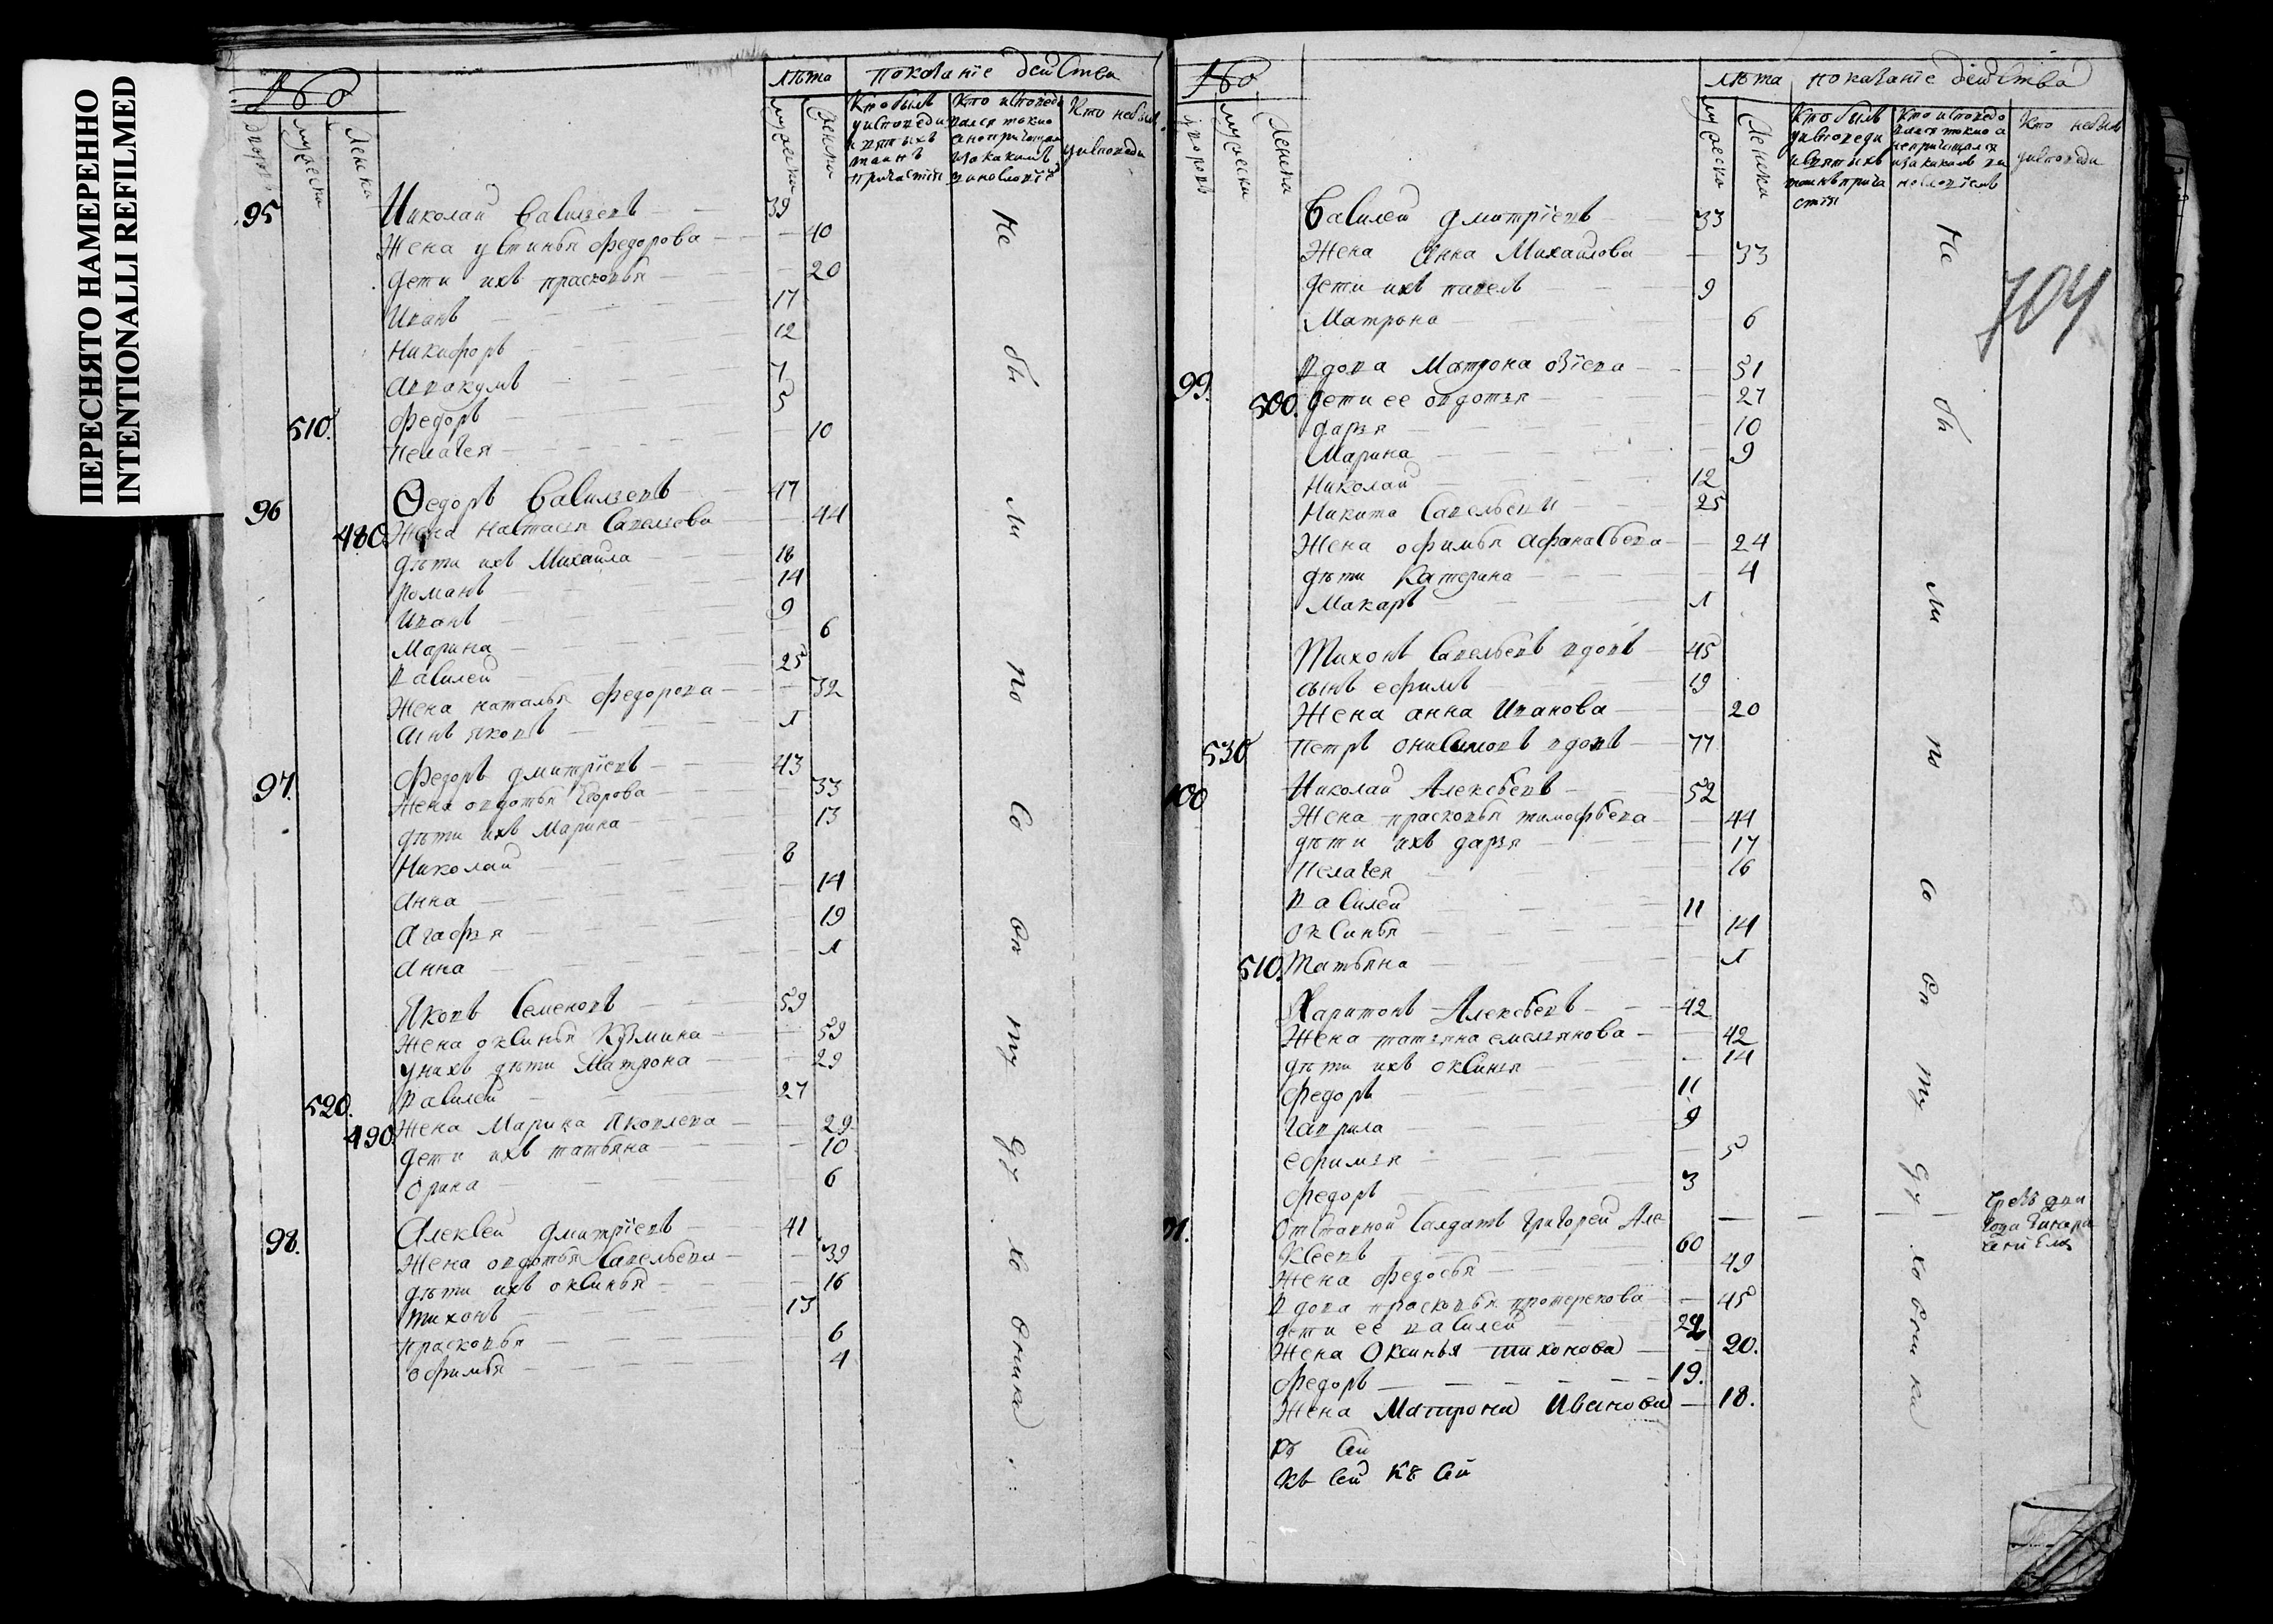 ПЕРЕСНЯТО НАМЕРЕННО
INTENTIONALLI REFILMED
лѣта показанїе действа
мужеска женска
Кто былъ у исповеди и святыхъ таинъ причастїи
Кто исповедывался токмо а не причащался
Кто не былъ у исповеди
мужеска женска
95 Николай Василиевъ 39
Жена устинья федорова 40
Дети ихъ прасковья 20
Иванъ 17
Никифоръ 12
Аввакумъ 7
510. Федоръ 5
пелагея 10
96 Ѳедоръ Василиевъ 47
480 Жена настасия Савелиева 44
дѣти ихъ Михаила 18
Романъ 14
Иванъ 9
Марина 6
Василей 25
Жена наталья федорова 32
сынъ яковъ 1
97. Федоръ дмитрїевъ 43
Жена овдотья Егорова 33
дѣти ихъ Марина 13
Николай 8
Анна 14
Агафия 19
Анна 1
Яковъ Семеновъ 59
Жена оксинья Кузмина 59
у нихъ дѣти Матрона 29
520. Василей 27
490 Жена Марина Яковлева 29
дети ихъ татьяна 10
Орина 6
98. Алексей Дмитрїевъ 41
Жена овдотья Савельева 39
дѣти ихъ оксинья 16
тихонъ 13
прасковья 6
офимья 4
Не бы ли по со от ту ду хо вника
лѣта показанїе действа
дворовъ мужеска женска
мужеска женска
Кто былъ у исповеди и святыхъ таинъ причастїи
Кто не былъ у исповеди
704
Василей дмитрїевъ 33
Жена Анна Михаилова 33
дети ихъ павелъ 9
Матрона 6
99. Вдова Матрона 51
500. дети ее овдотия 27
дария 10
Марина 9
Николай 12
Никита Савельевъ 25
Жена офимья Афанасьева 24
дѣти Катерина 4
Макаръ 1
Тихонъ Савельевъ вдовъ 45
сынъ ефимъ 19
Жена анна Иванова 20
530 Петръ онисимовъ вдовъ 77
100 Николай Алексѣевъ 52
Жена прасковья тимофѣева 44
дѣти ихъ дария 17
Пелагея 16
Василей 11
оксинья 14
510. Татьяна 1
Харитонъ Алексѣевъ 42
Жена татияна емелиянова 42
дѣти ихъ оксиния 14
Федоръ 11
Гаврила 9
ефимия 5
Федоръ 3
Отставной Салдатъ Григорей Але
ксеевъ 60
Жена федосья 49
Вдова прасковья 45
дети ее василей 22
Жена Оксинья тихонова 20.
Федоръ 19.
Жена Матрона Иванова 18.
Не бы ли по со от ту ду хо вника
Къ сей